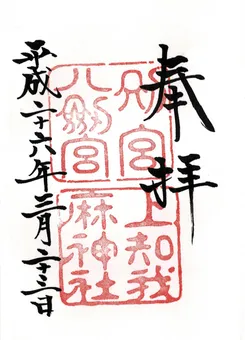 奉拝
別宮
八剣宮
上知我
麻神社
平成二十六年三月二十二日